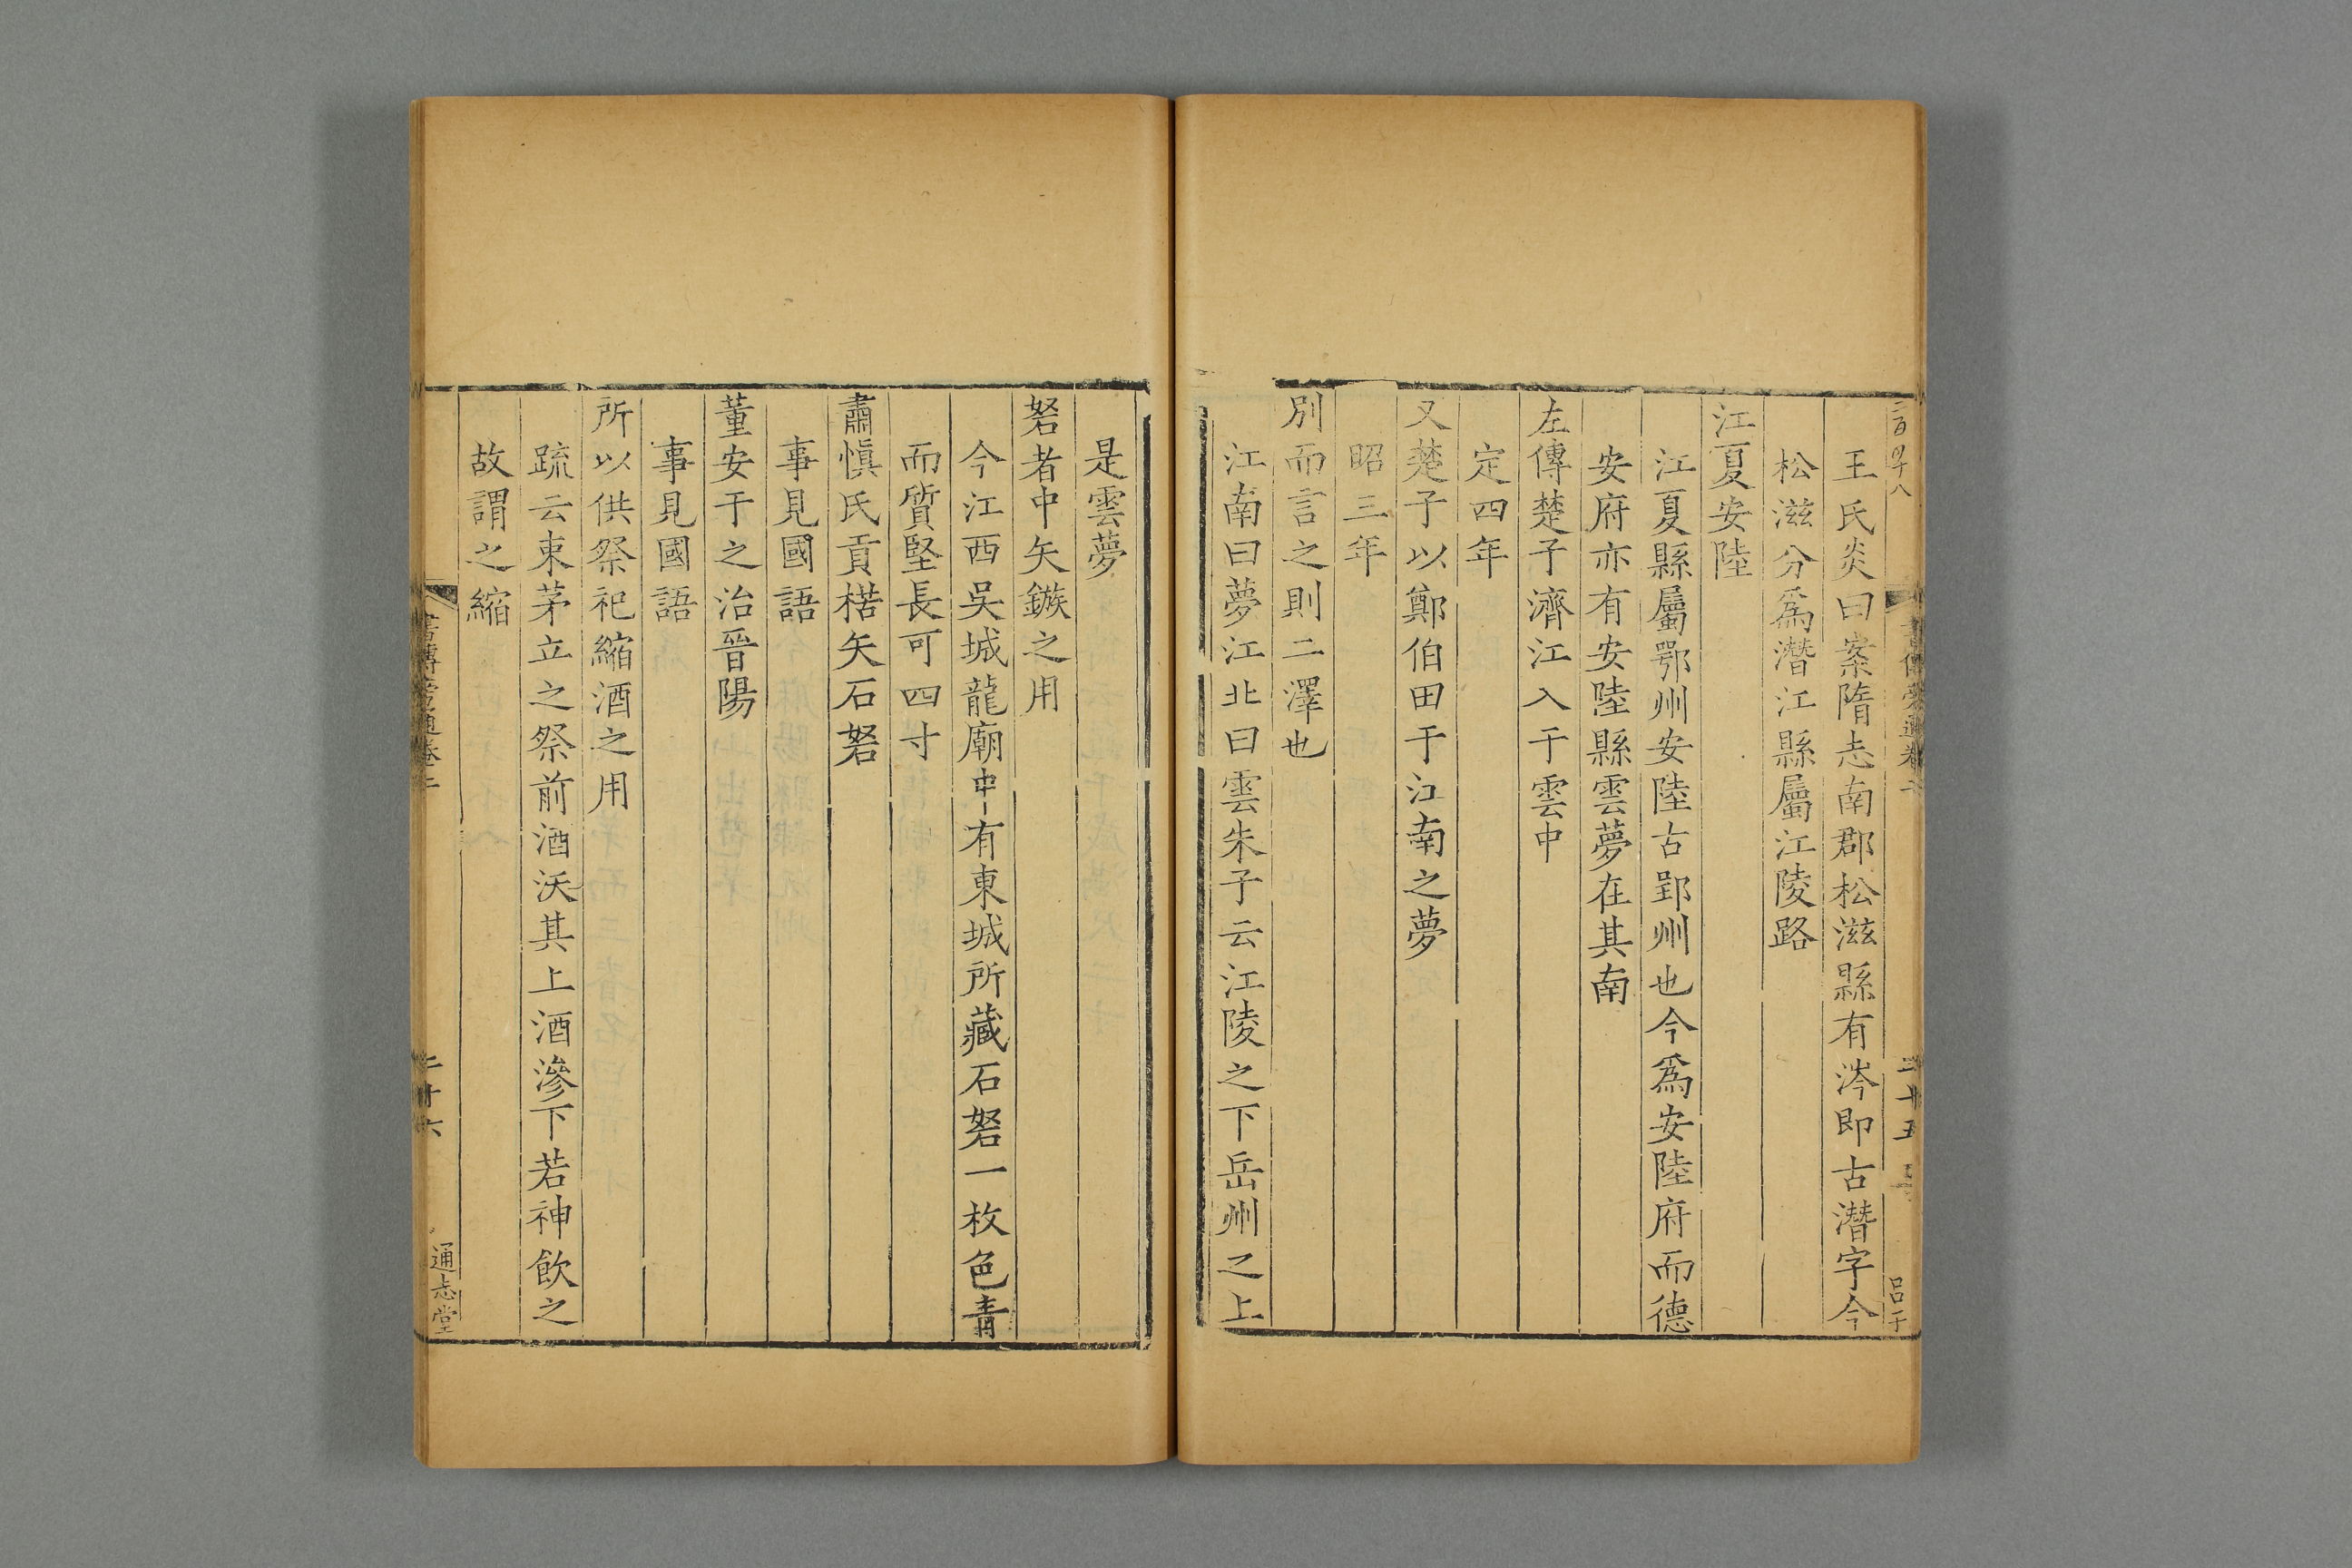 二百四十八
王氏炎曰案隋志南郡松滋縣有涔即古潛字今
松滋分爲潛江縣屬江陵路
江夏安陸
江夏縣屬鄂州安陸古郢州也今爲安陸府而德
安府亦有安陸縣雲夢在其南
左傳楚子濟江入于雲中
定四年
又楚子以鄭伯田于江南之夢
昭三年
別而言之則二澤也
江南曰夢江北曰雲朱子云江陵之下岳州之上
是雲夢
砮者中矢鏃之用
今江西吳城龍廟中有東城所藏石砮一枚色青
而質堅長可四寸
肅愼氏貢楛矢石砮
事見國語
董安于之治晉陽
事見國語
所以供祭祀縮酒之用
疏云束茅立之祭前酒沃其上酒滲下若神飲之
故謂之縮
書傳旁通卷二
二十六
通志堂